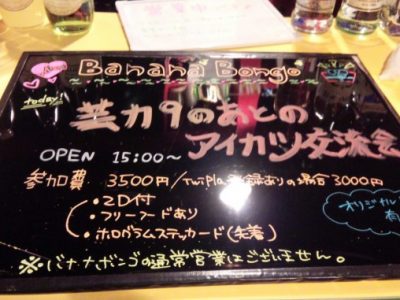 Banana Bongo
today!
芸カ9のあとの
アイカツ交流会
OPEN 15:00〜
参加費 3500円/TwiPla登録ありの場合3000円
・2D付
・フリーフードあり
・ホログラムステッカード(先着)
オリジナル
有
※バナナボンゴの通常営業はございません。